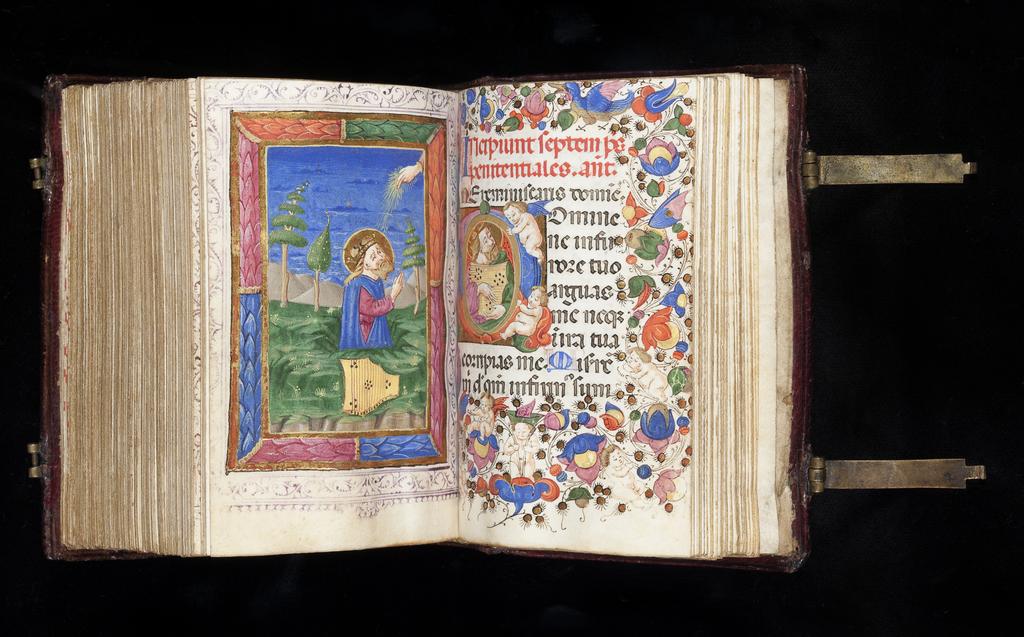 Incipiunt septem ps
penitentiales. ant.
Ne reminiscaris domie.
Domine
ne infu
rore tuo
arguas
me neqz
in ira tua
corripias me. Misere
mei dñe qm infirmus sum